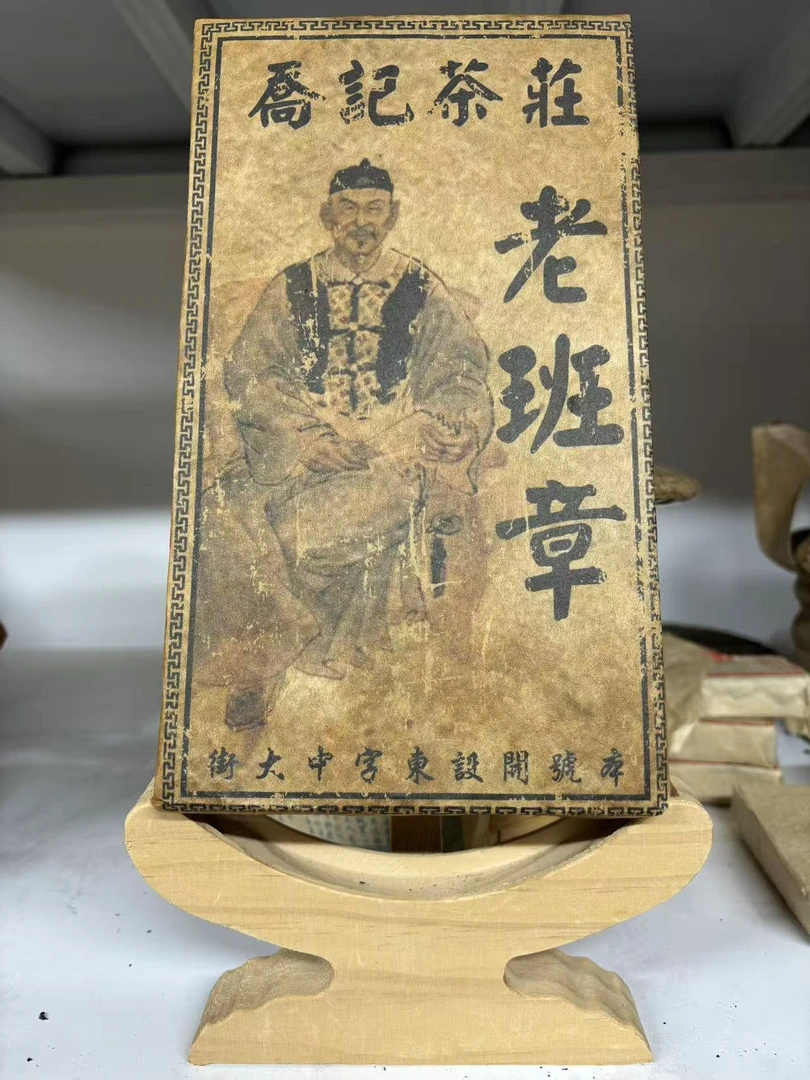 喬記茶莊
老班章
本號開設東字中大街